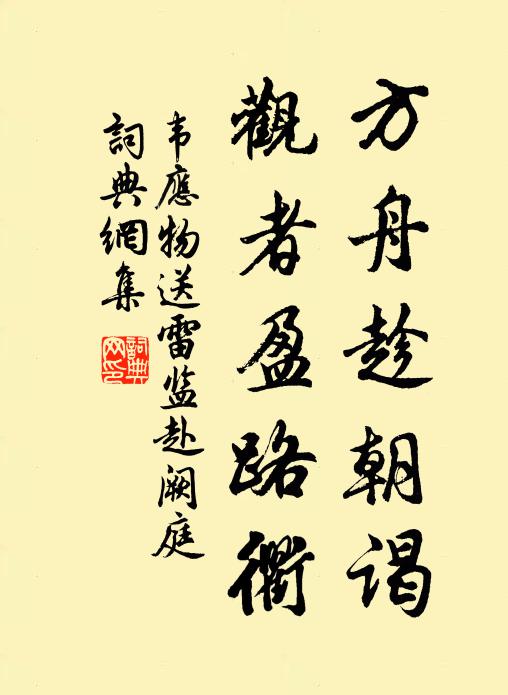 方舟趁朝谒
觀者盈路衢
韦應物送雷监赴阙庭
詞典網集
詞典网印